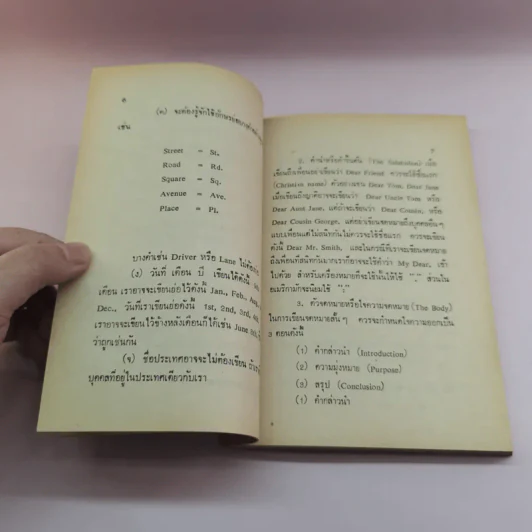 ๖
(๓) จะต้องรู้จักใช้อักษรย่อ
เช่น
Street = St.
Road = Rd.
Square = Sq.
Avenue = Ave.
Place = Pl.
บางคำเช่น Driver หรือ Lane ไม่ต้องย่อ
(ง) วันที่ เดือน ปี เขียนได้ดังนี้
เดือน เราอาจจะเขียนย่อไว้ดังนี้ Jan., Feb., Aug.,
Dec., วันที่เราเขียนย่อดังนี้ 1st, 2nd, 3rd, 4th
เราอาจจะเขียนไว้ข้างหลังเดือนก็ได้เช่น June 8th,
ว่าถูกเช่นกัน
(จ) ชื่อประเทศอาจจะไม่ต้องเขียน ถ้า
บุคคลที่อยู่ในประเทศเดียวกับเรา
๗
2. คำนำหรือคำขึ้นต้น (The Salutation) เมื่อ
เขียนถึงเพื่อนอย่าเขียนว่า Dear Friend ควรจะใช้ชื่อแรก
(Christion name) ตัวอย่างเช่น Dear Tom, Dear Jane
เมื่อเขียนถึงญาติอาจจะเขียนว่า Dear Uncle Tom หรือ
Dear Aunt Jane, แต่ถ้าจะเขียนว่า Dear Cousin, หรือ
Dear Cousin George, แต่อย่าเขียนจดหมายถึงบุคคลอื่นๆ
แบบเพื่อนแต่ไม่สนิทกันไม่ควรจะใช้ชื่อแรก ควรจะเขียน
ดังนี้ Dear Mr. Smith, และในกรณีที่เราจะเขียนจดหมาย
ถึงเพื่อนที่สนิทกันมากเราก็อาจจะใช้คำว่า My Dear, เข้า
ไปด้วย สำหรับเครื่องหมายที่จะใช้นั้นให้ใช้ "," ส่วนใน
อเมริกามักจะนิยมใช้ ":"
3. ตัวจดหมายหรือใจความจดหมาย (The Body)
ในการเขียนจดหมายสั้นๆ ควรจะกำหนดใจความออกเป็น
3 ตอนดังนี้
(1) คำกล่าวนำ (Introduction)
(2) ความมุ่งหมาย (Purpose)
(3) สรุป (Conclusion)
(1) คำกล่าวนำ